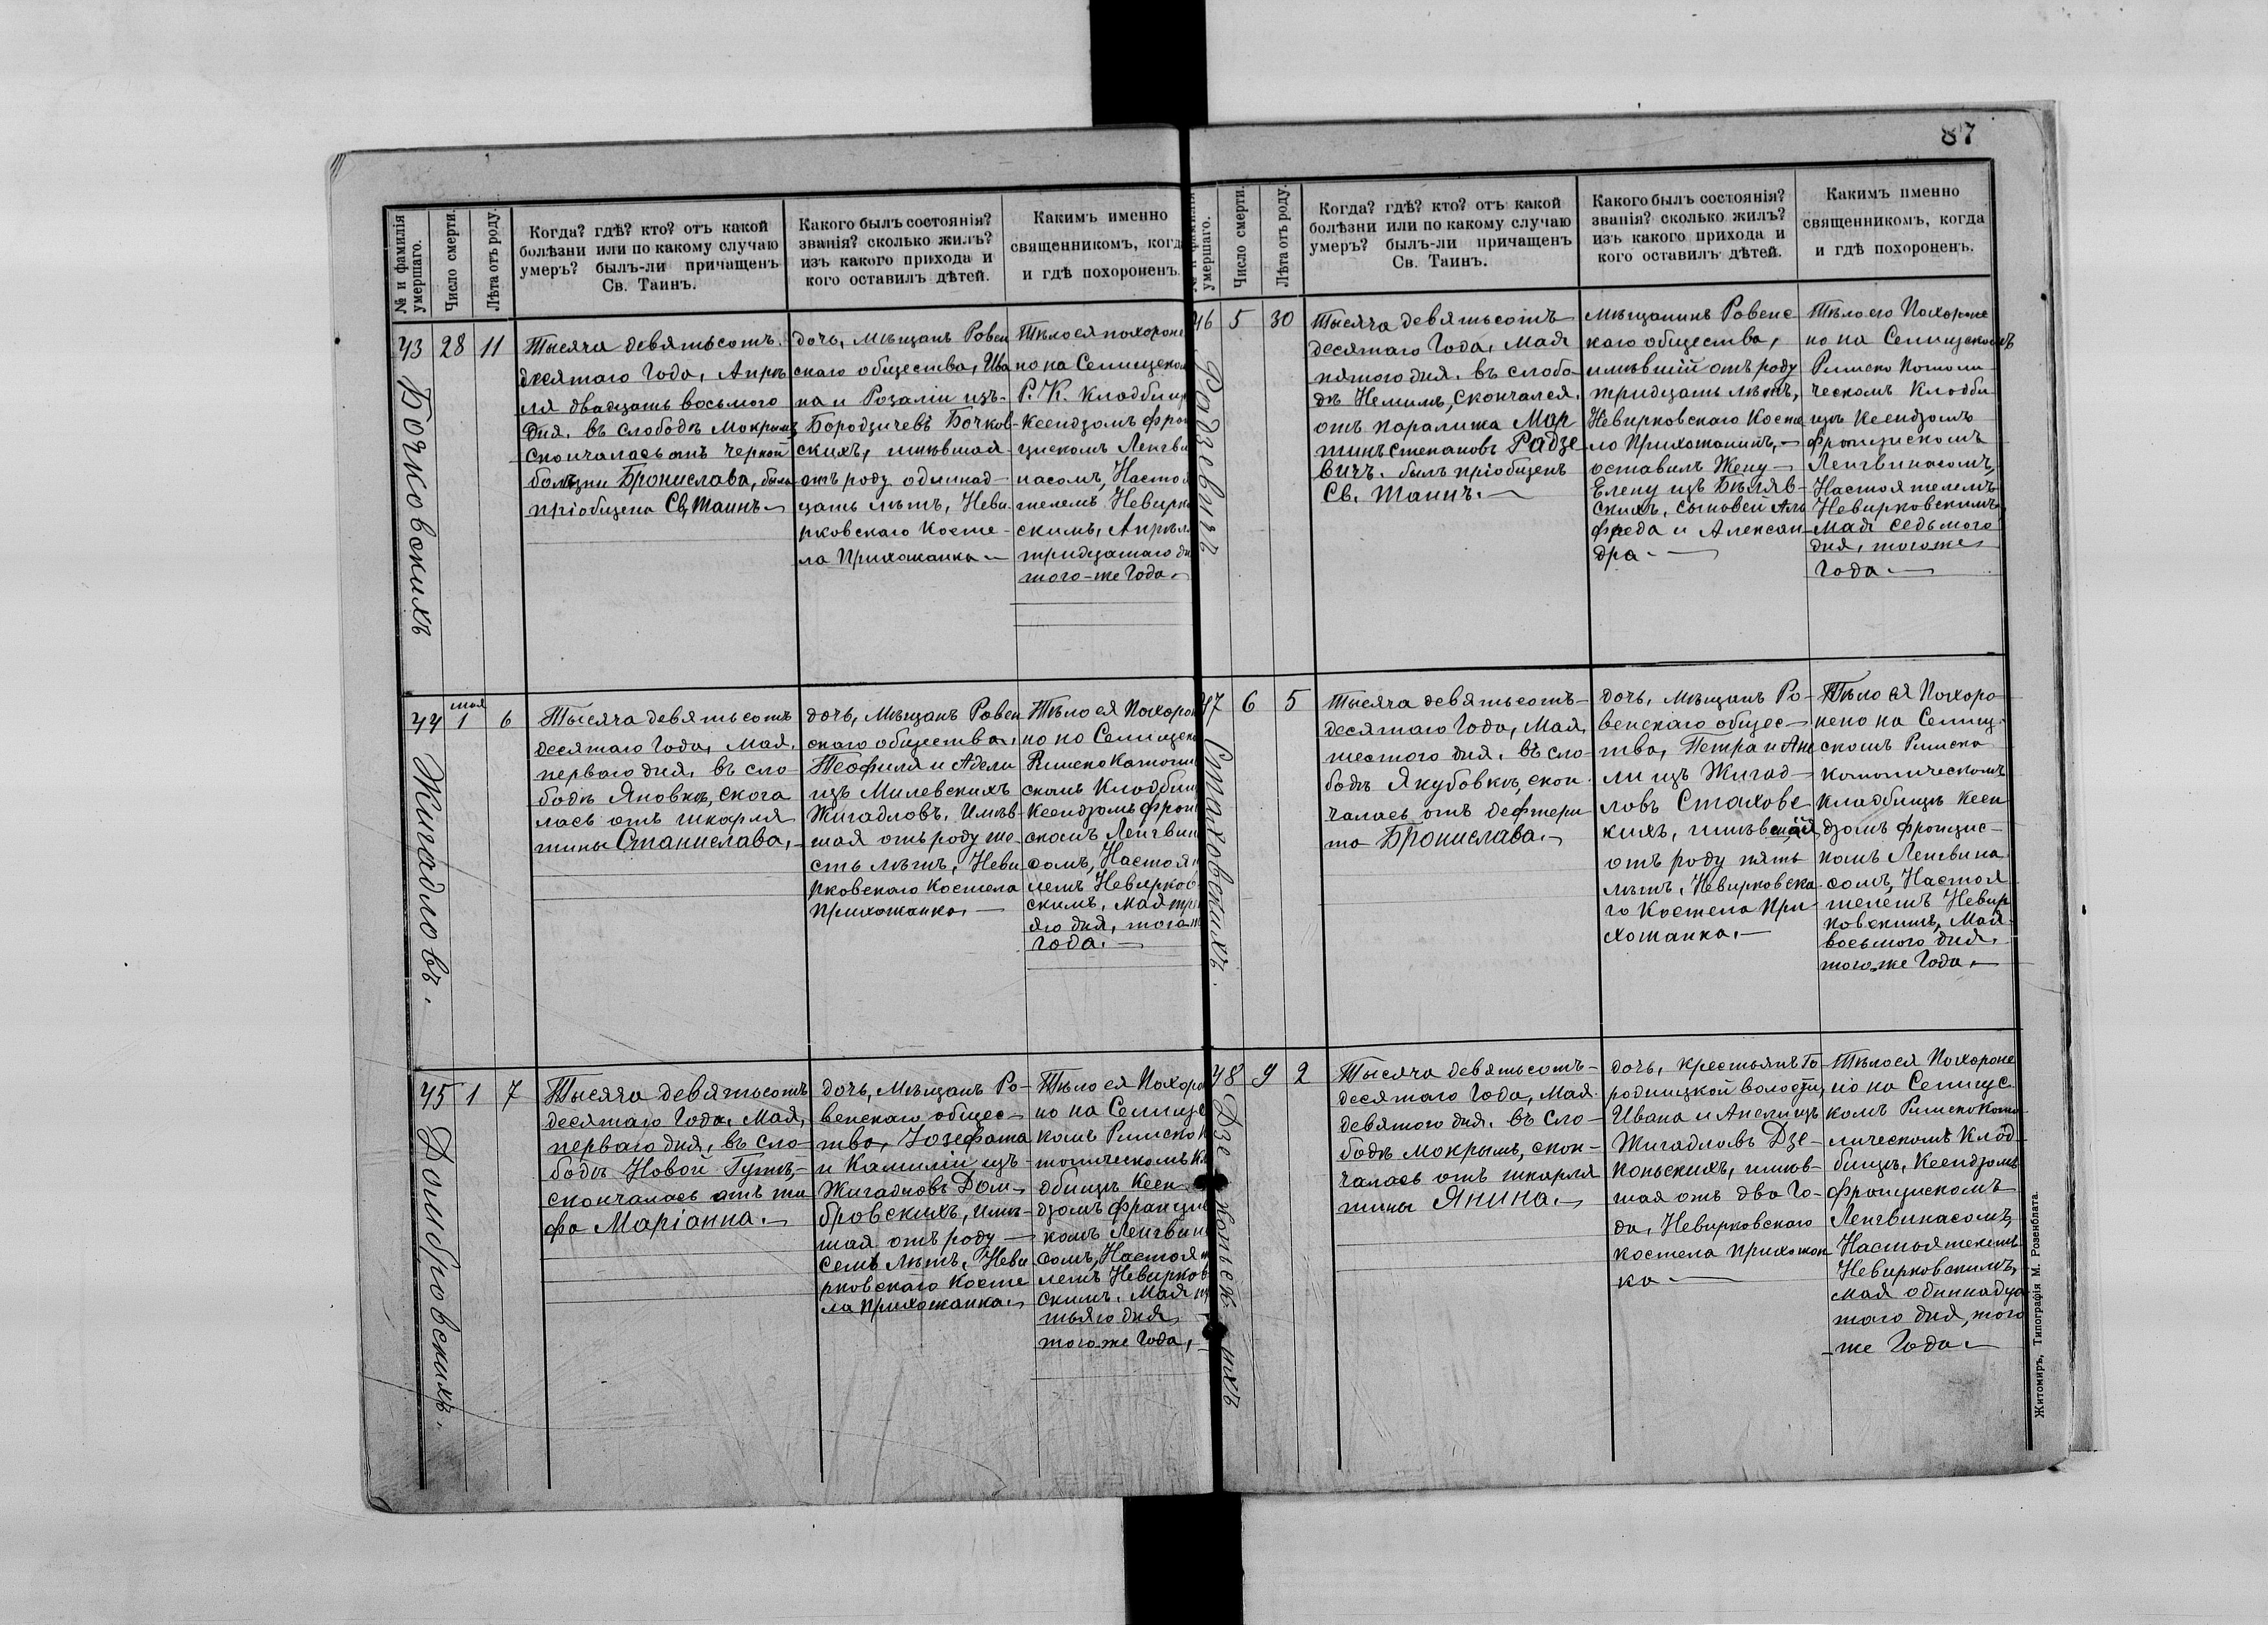 87
№ и фамилія
умершаго.
Число смерти.
Лѣта отъ роду.
Когда? гдѣ? кто? отъ какой
болѣзни или по какому случаю
умеръ? былъ-ли причащенъ
Св. Таинъ.
Какого былъ состоянія?
званія? сколько жилъ?
изъ какого прихода и
кого оставилъ дѣтей.
Какимъ именно
священникомъ, когда
и гдѣ похороненъ.
43
28
11
Бочковскихъ
Тысяча девятьсотъ
десятаго Года, Апрѣ
ля двадцать восьмого
дня. въ слободѣ Мокрымъ
скончалась отъ черной
болѣзни Бронислава, была
пріобщена Св, Таинъ.
дочь, мѣщанъ Ровен
скаго общества, Ива
на и Розаліи изъ-
Бородзичевъ Бочков-
скихъ, имѣвшая
отъ роду одиннад-
цать лѣтъ, Неви
рковскаго Косте-
ла Прихожанка
Тѣло ея похороне
но на Селищеном
Р. К. Кладбищ
Ксендзомъ Фран
цискомъ Ленгви
насомъ, Настоя
телемъ Невирко
скимъ, Апрѣля
тридцатаго дн
того-же Года.
44
мая
1
6
Жигадловъ.
Тысяча девятьсотъ
десятаго Года, Мая,
перваго дня. въ сло-
бодѣ Яновкѣ, скога
лась отъ шкарля
тины Станислава,
дочь, Мѣщанъ Ровен
скаго общества,
Теофиля и Адели
изъ Милевскихъ
Жигадловъ. Имѣв-
шая отъ роду ше-
сть лѣтъ, Неви
рковскаго Костела
Прихожанка,
Тѣло ея Похорон
но на Селищен
Римско Католи
скомъ Кладбищ
Ксендзомъ Фран
скомъ Ленгвин
сомъ, Настоя
лемъ Невирков
скимъ, Мая тре
яго дня, того ж
Года.
45
1
7
Домбровскихъ.
Тысяча девятьсотъ
десятаго Года, Мая,
перваго дня, въ сло-
бодѣ Новой Гутѣ,
скончалась отъ ти
фа Маріанна.
дочь, Мѣщанъ Ро-
венскаго общес-
тва, Іозефата
и Камиліи изъ
Жигадловъ Дом-
бровскихъ, имѣ-
шая отъ роду
семь лѣтъ, Неви
рковскаго Косте
ла прихожанка.
Тѣло ея Похоро
но на Селище
комъ Римско К
толическомъ Кл
дбищѣ Ксен
дзомъ Францис
комъ Ленгвин
сомъ, Настоят
лемъ Невирков
скимъ. Мая тре
тьяго дня,
того-же Года,
умершаго.
Число смерти.
Лѣта отъ роду.
Когда? гдѣ? кто? отъ какой
болѣзни или по какому случаю
умеръ? былъ-ли причащенъ
Св. Таинъ.
Какого былъ состоянія?
званія? сколько жилъ?
изъ какого прихода и
кого оставилъ дѣтей.
Какимъ именно
священникомъ, когда
и гдѣ похороненъ.
46
5
30
Радзевичъ
Тысяча девятьсотъ
десятаго Года, Мая
пятого дня. въ слобо-
дѣ Немимъ, скончался.
отъ паралижа Мар
тинъ Степановъ Радзе
вичъ. былъ пріобщенъ
Св. Таинъ.
Мѣщанинъ Ровенс
каго общества,
имѣвшій отъ роду
тридцать лѣтъ,
Невирковскаго Косте
ло Прихожанинъ,
оставилъ Жену
Елену изъ Бѣляв-
скихъ, сыновей Аль
фреда и Алексан
дра
Тѣло его Похороне
но на Селищскомъ
Римско Католи
ческомъ Кладби
щѣ Ксендзомъ
Францискомъ
Ленгвинасомъ,
Настоятелемъ
Невирковскимъ
Мая седьмого
дня, того же
Года
47
6
5
Стаховскихъ.
Тысяча девятьсотъ-
десятаго Года, Мая,
шестого дня. въ сло-
бодѣ Якубовкѣ, скон-
чалась отъ дефтери
та Бронислава.
дочь, Мѣщанъ Ро-
венскаго общес-
тва, Петра и Ане
ли изъ Жигад-
ловъ Стаховс
кихъ, имѣвшая
отъ роду пять
лѣтъ, Невирковска
го Костела При-
хожанка,
Тѣло ея Похоро-
нено на Селищ-
скомъ Римско
Католическомъ
Кладбищѣ Ксен
дзомъ Францис-
комъ Ленгвина
сомъ, Настоя
телемъ Невир
ковскимъ, Мая
восьмого дня.
того-же Года
48
9
2
Дзеконьскихъ
Тысяча девятьсотъ-
десятаго Года, Мая
девятого дня. въ сло-
бодѣ Мокрымъ, скон-
чалась отъ шкарля
тины Янина.
дочь, крестьянъ Го
родницкой волости,
Ивана и Анели изъ
Жигадловъ Дзе-
коньскихъ, имѣв-
шая отъ два го-
да, Невирковскаго
костела прихожан
ка
Тѣло ея Похороне
но на Селищс
комъ Римско Като-
лическомъ Клад-
бищѣ, Ксендзомъ
Францискомъ
Ленгвинасомъ,
Настоятелемъ
Невирковскимъ,
Мая одиннадца
таго дня, того
же Года
Житомиръ, Типографія М. Розенблата.